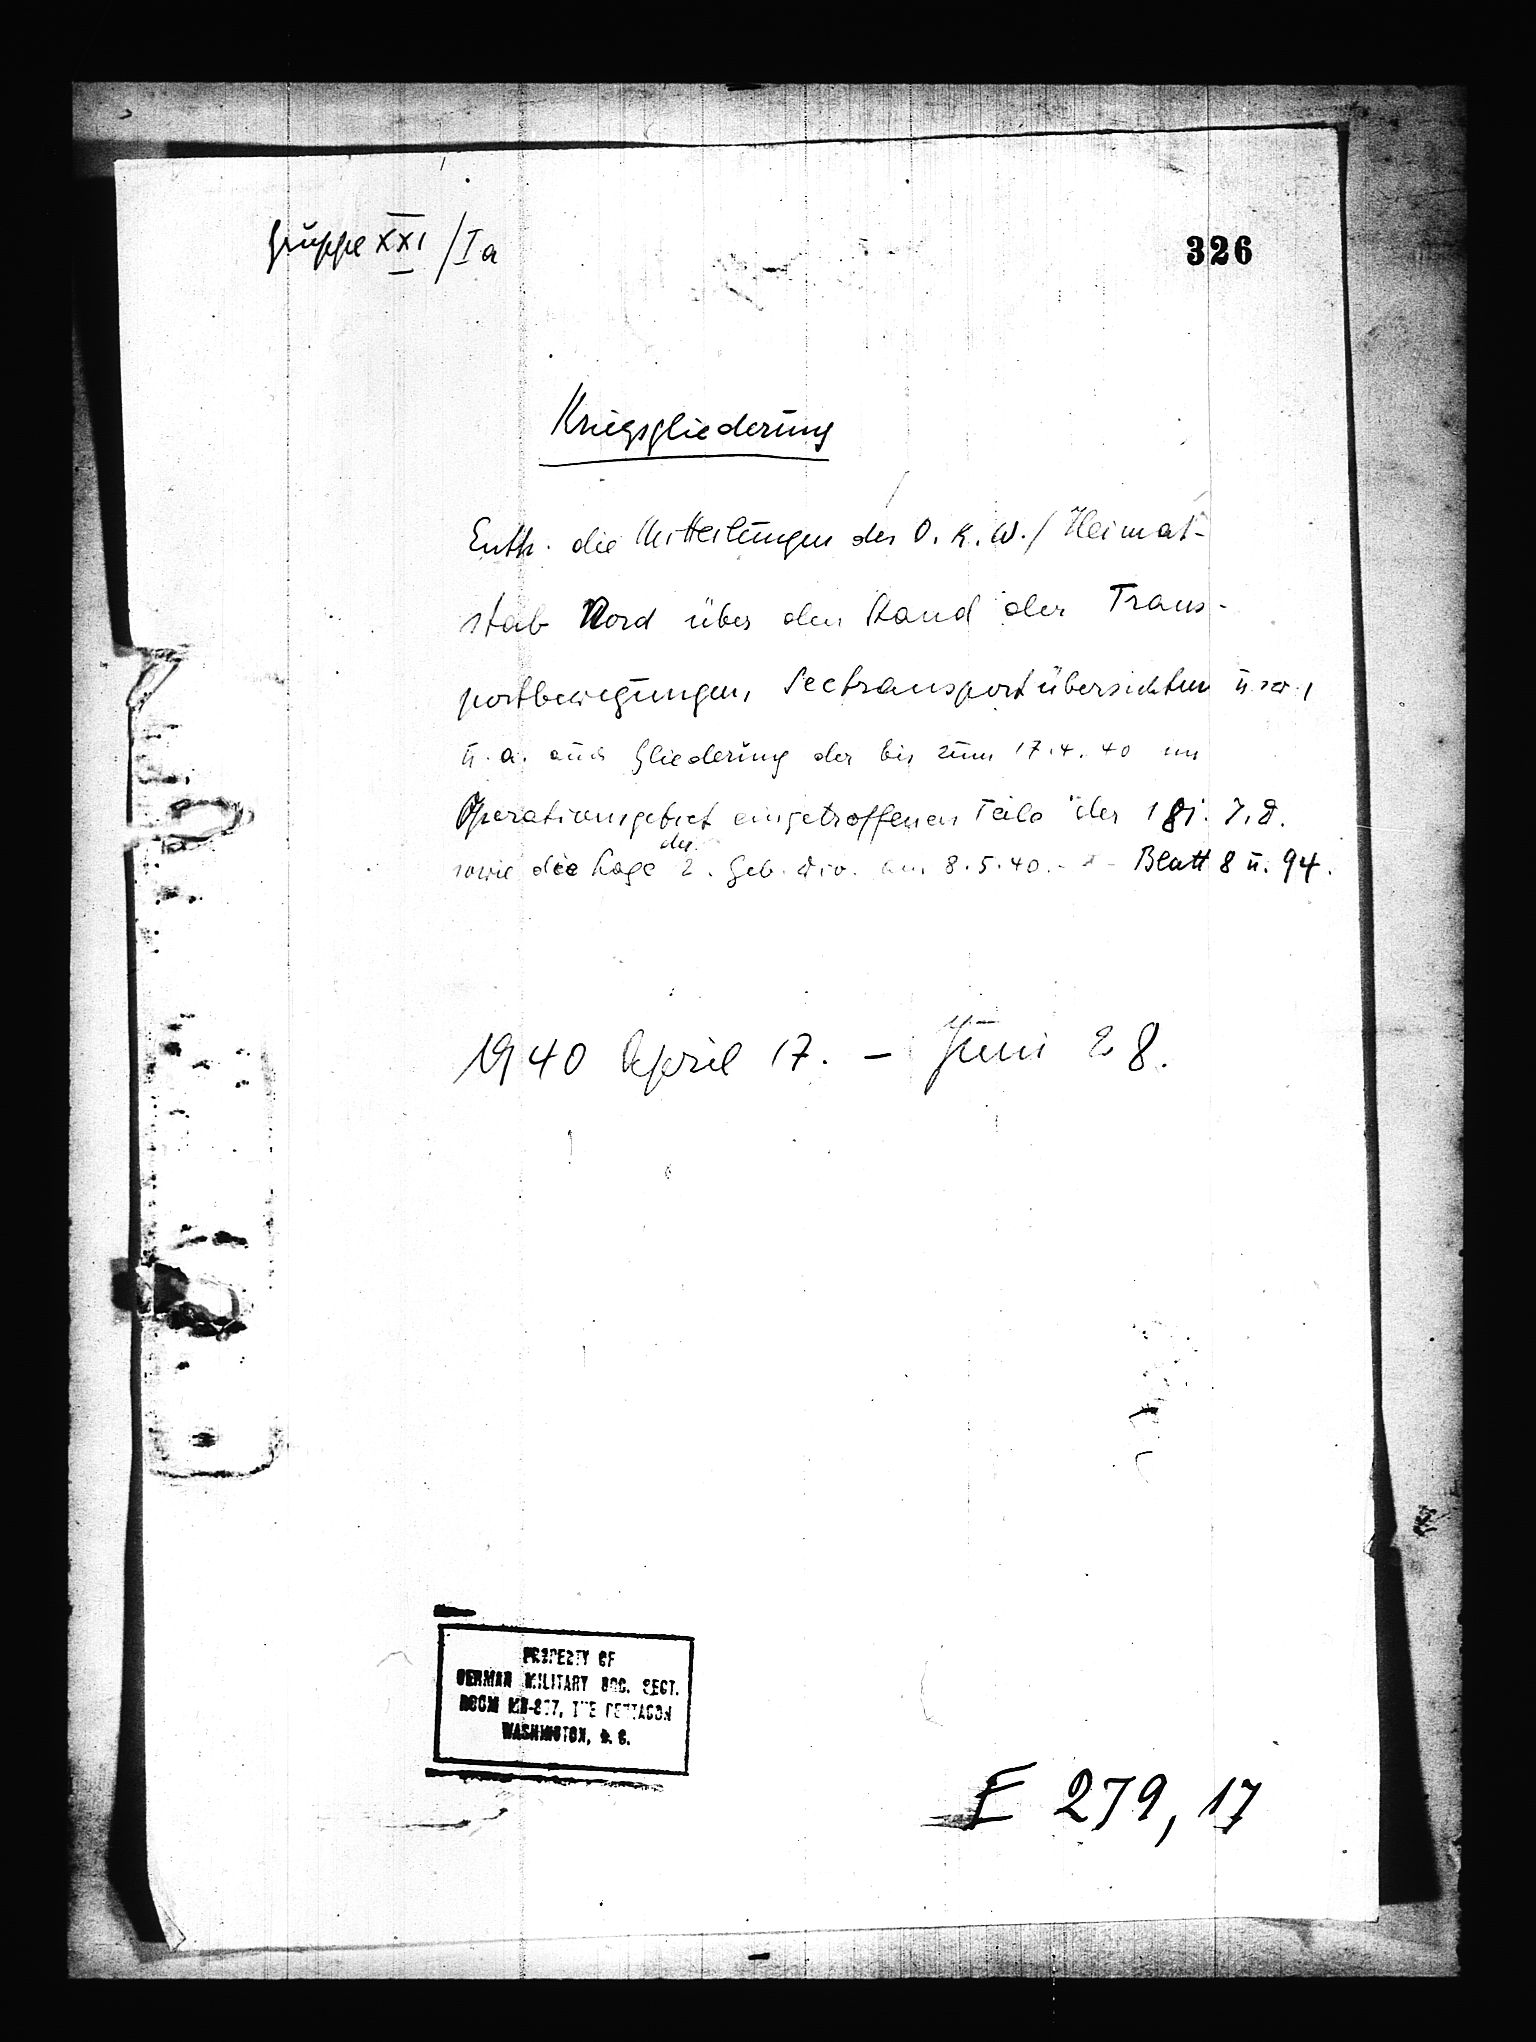 Gruppe XXI / Ia
326
Kriegsgliederung
Enth. die Mitteilungen des O.K.W./Heimat-
stab Nord über den Stand der Trans-
portbewegungen, Seetransportübersichten u.sw.,
u.a. auch Gliederung der bis zum 17.4.40 im
Operationsgebiet eingetroffenen Teile der 181. I.D.
sowie die Lage der 2. Geb. Div. am 8.5.40. - Blatt 8 u. 94.
1940 April 17. – Juni 28.
PROPERTY OF
GERMAN MILITARY DOC. SECT.
ROOM MB-867, THE PENTAGON
WASHINGTON, D. C.
E 279, 17